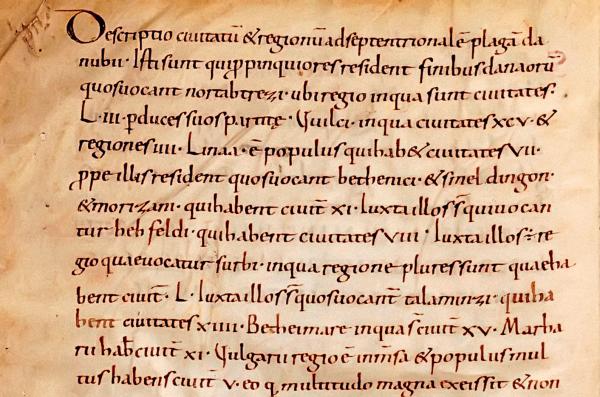 Descriptio ciuitatū & regionū ad septentrionalē plagā da
nubii · Isti sunt qui ppinquiores resident finibus danaorū
quos uocant nortabtrezi · ubi regio in qua sunt ciuitates·
L·iii· p duces suos partite · Uuilci · in qua ciuitates xcv· &
regiones iiii · Linaa · ē populus qui hab& ciuitates vii·
ppe illis resident quos uocant bethenici · & smeldingon·
& morizani · qui habent ciuit̄ xi· Iuxta illos s̄ qui uocan
tur hehfeldi · qui habent ciuitates viii · Iuxta illos ÷ re
gio quae uocatur surbi · in qua regione plures sunt quae ha
bent ciuit̄· L· Iuxta illos s̄ quos uocant talaminzi · qui ha
bent ciuitates xiiii· Betheimare in qua s̄ ciuit̄ xv· Marha
rii hab̄ ciuit̄ xi· Uulgarii regio ē inm̄sa & populus mul
tus habens ciuit̄ v· eo q multitudo magna ex eis sit & non